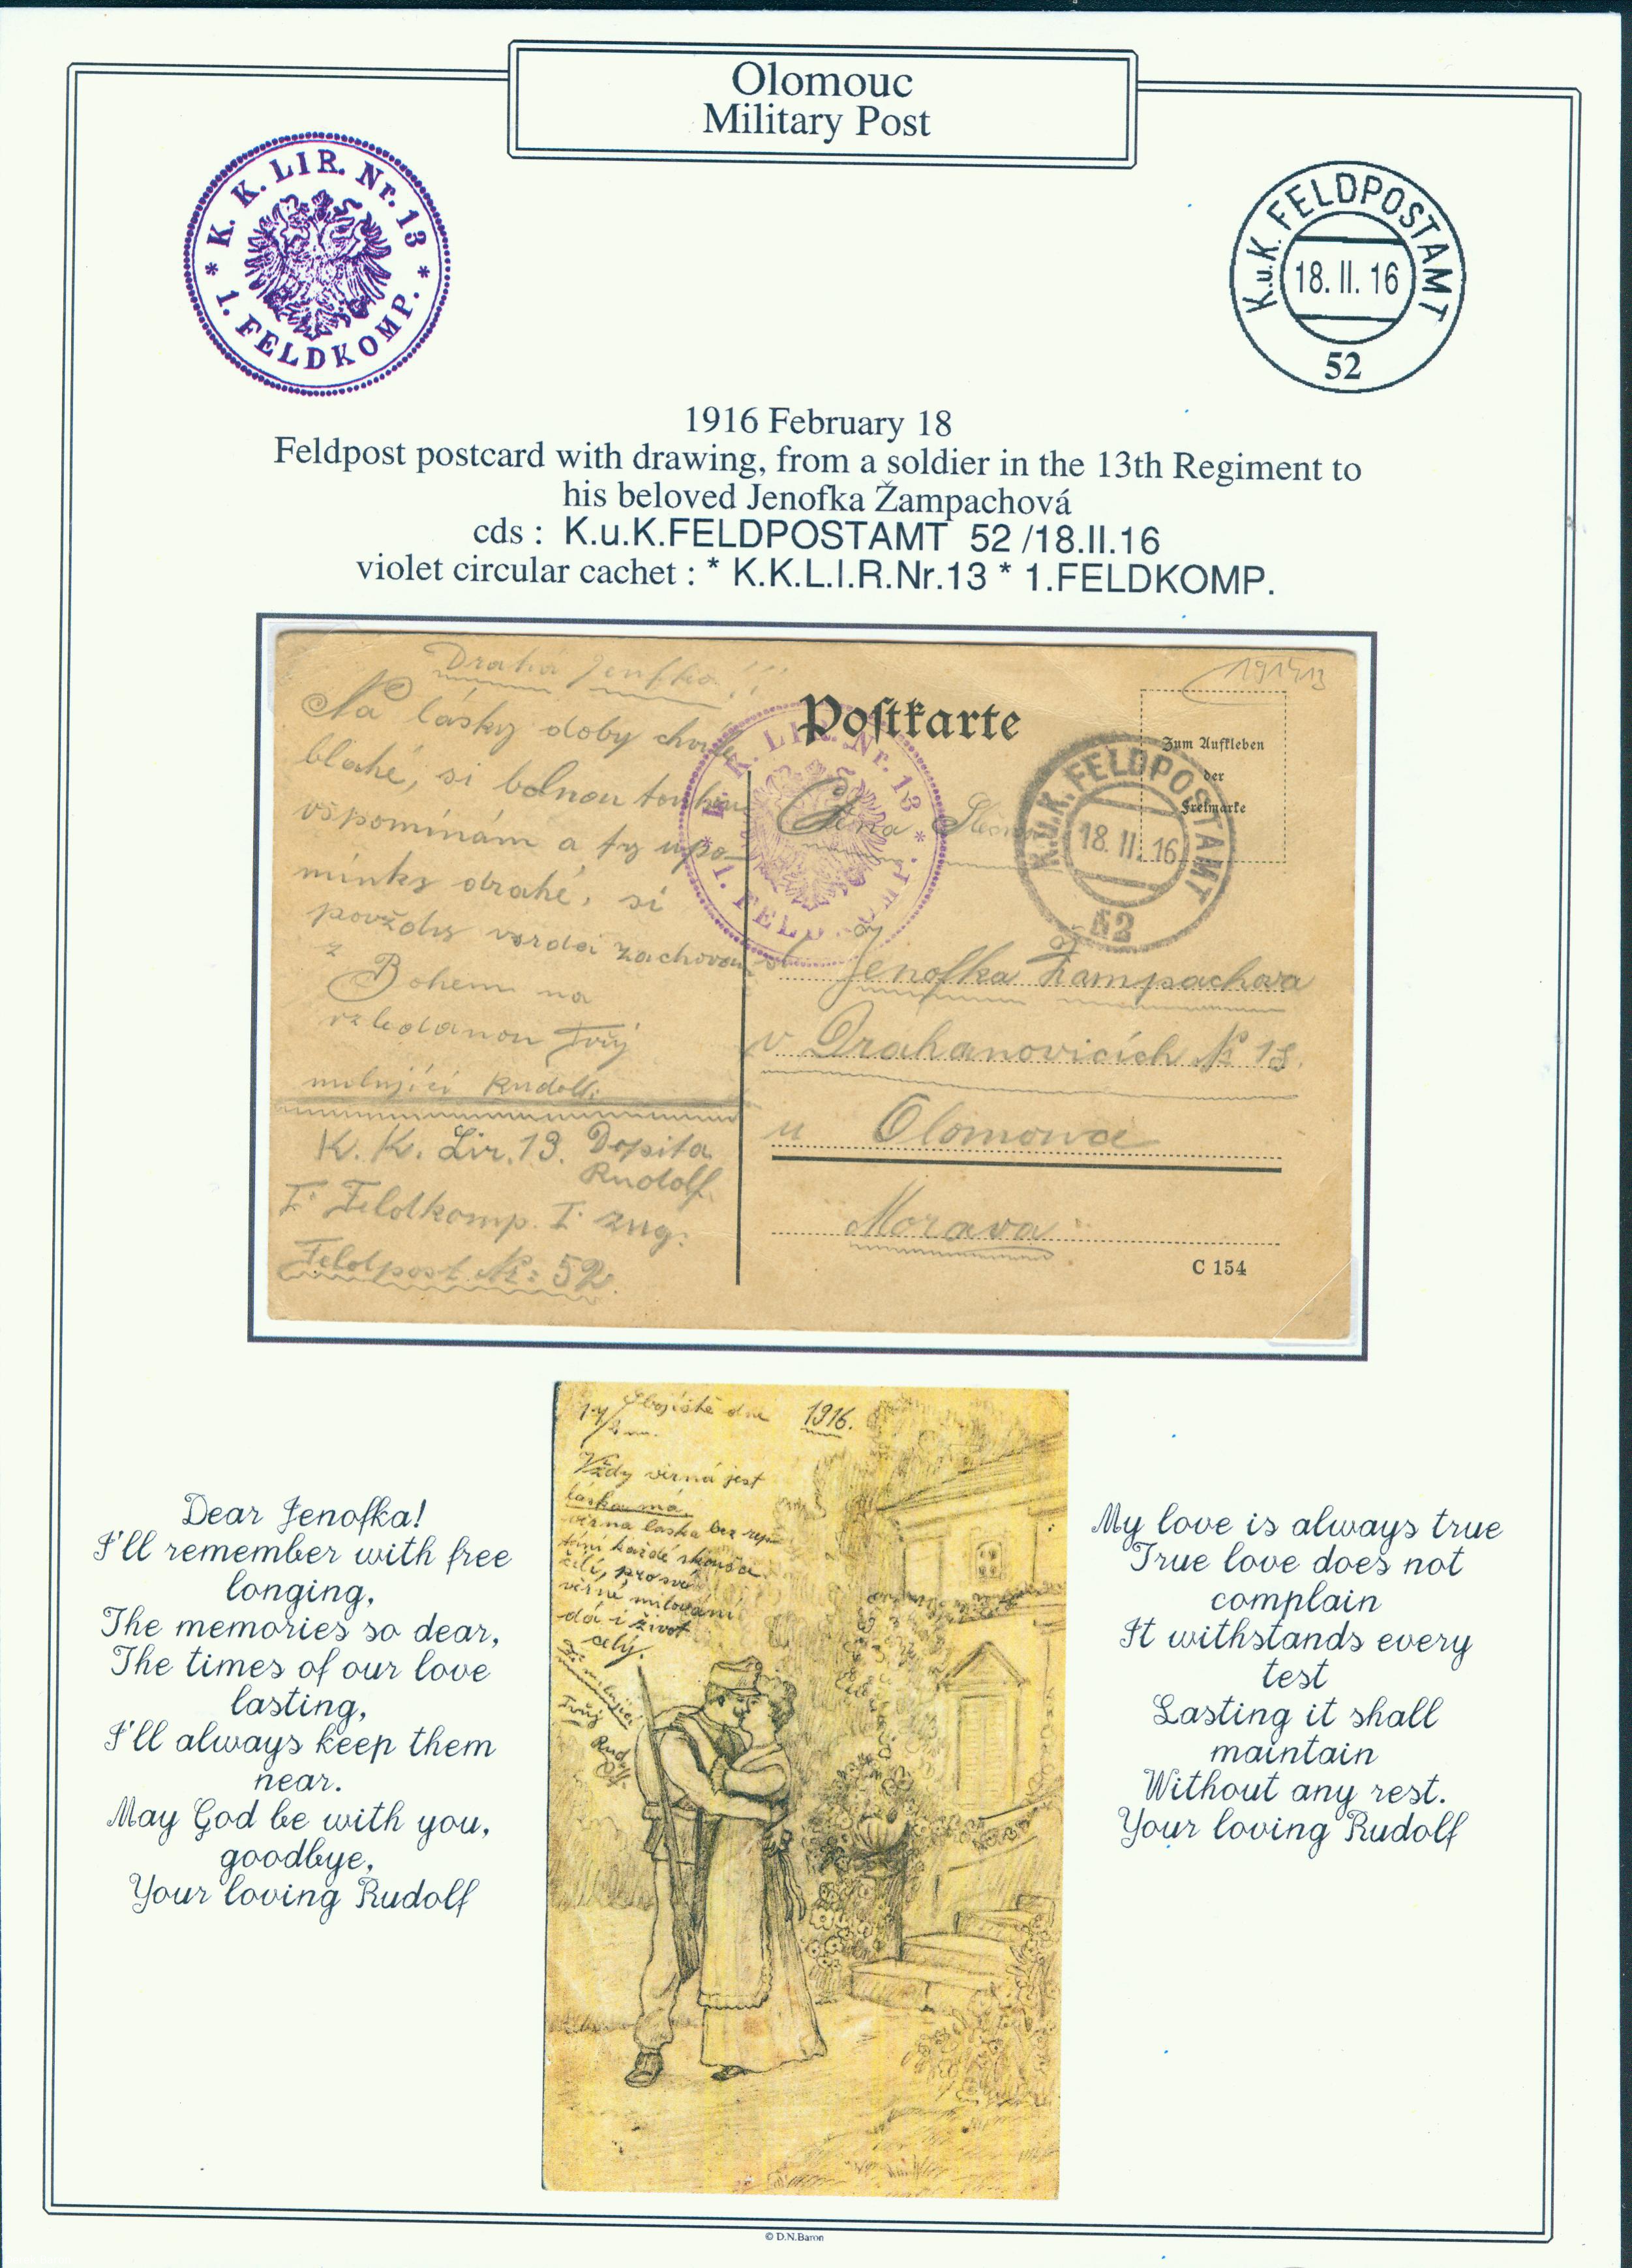 Olomouc
Military Post
* K. K. LIR. Nr. 13 *
1. FELDKOMP.
K.u.K. FELDPOSTAMT
18. II. 16
52
1916 February 18
Feldpost postcard with drawing, from a soldier in the 13th Regiment to
his beloved Jenofka Žampachová
cds : K.u.K.FELDPOSTAMT 52 /18.II.16
violet circular cachet : * K.K.L.I.R.Nr.13 * 1.FELDKOMP.
Drahá Jenfka!!!
Na lásky doby chvíle
blahé, si bolnou touhou
vspomínám a ty upo-
mínky drahé, si
povždy
z Bohem na
Tvůj
milující Rudolf.
K. K. Lir. 13. Dopita
Rudolf.
I. Feldkomp. I. Zug.
Feldpost №: 52.
Postkarte
191413
Zum Aufkleben
der
Freimarke
K. K. LIR. Nr. 13 *
1. FELDKOMP.
K.u.K. FELDPOSTAMT
18. II. 16
52
Ctěna Slečna
Jenofka Žampachova
v Drahanovicích № 18.
u Olomouce
Morava
C 154
dne 1916.
Vždy věrná jest
láska má
věrna laska bez
každé
pro své
věrné milování
dá i život
celý.
milující
Tvůj
Rudolf.
Dear Jenofka!
I'll remember with free
longing,
The memories so dear,
The times of our love
lasting,
I'll always keep them
near.
May God be with you,
goodbye,
Your loving Rudolf
My love is always true
True love does not
complain
It withstands every
test
Lasting it shall
maintain
Without any rest.
Your loving Rudolf
© D.N.Baron